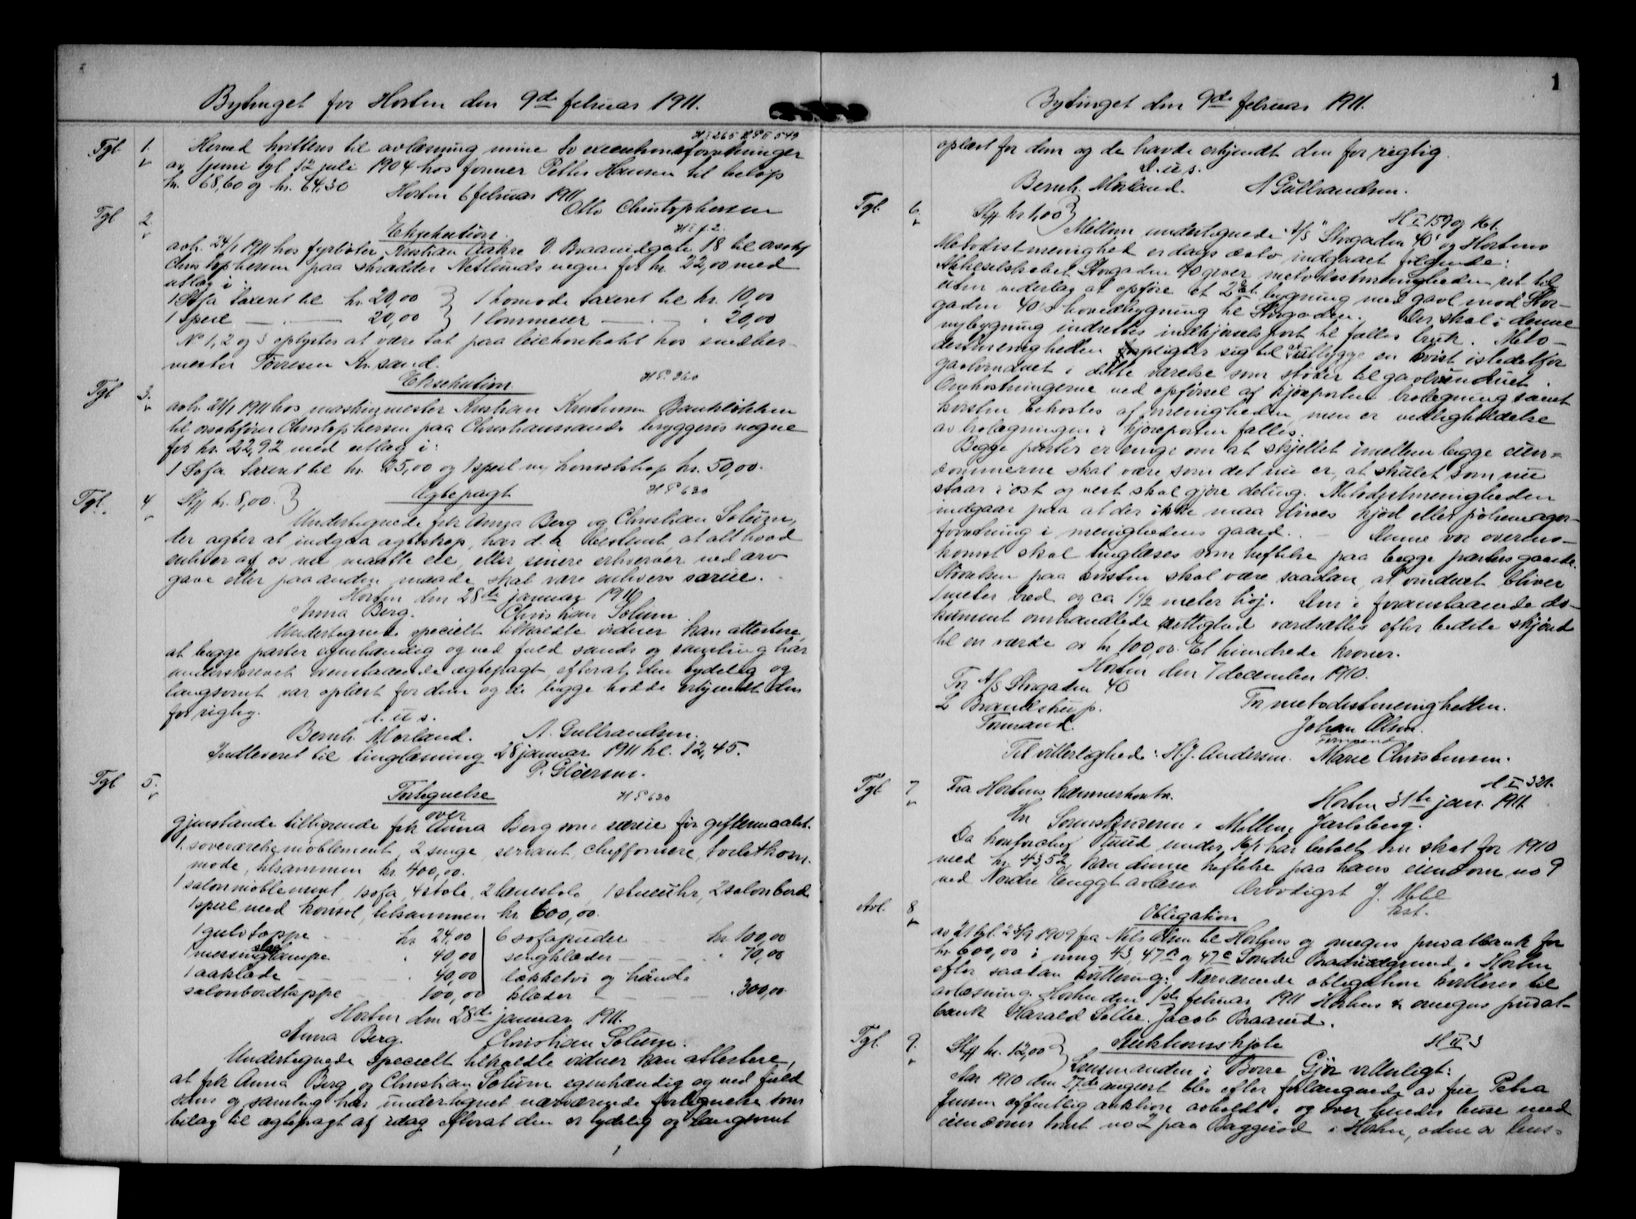 Bytinget for Horten den 9de februar 1911.
Tgl 1. Herved kvitteres til avlæsning mine to executionsforretninger
av 1 juni tgl 12 juli 1904 hos former Petter Hansen til beløp
kr. 68,60 og kr. 64.30 Horten 6 februar 1911
Otto Christophersen
Tgl 2. Eksekution.
avh. 24/1 1911 hos fyrbøter Kristian Aakre V. Braarudgate 18 til
Christophersen paa skrædder Nedlunds vegne for kr. 22,00 med
utlæg i:
1 Sofa taxeret til kr. 20,00 } 1 komode taxeret til kr. 10,00
1 speil — — 20,00 } 1 lommeur — — 20,00
No 1, 2 og 3 oplystes at være tat paa leiekontrakt hos snedker-
mester Torresen Kr.sand.
Tgl 3. Eksekution H P. 260
avh. 24/1 1911 hos maskinmester Kristian Kristensen Bankløkken
til Christophersen paa Christianssands bryggeris vegne
for kr. 22,92 med utlæg i:
1 Sofa taxeret til kr. 25,00 og 1 speil m/ konsolskap kr. 50,00.
Tgl. 4 Stpl kr. 8,00. } Egtepagt H P 620
Undertegnede frk Anna Berg og Christian Solum,
der agter at indgaa egteskap, har d.d. bestemt, at alt hvad
enhver af os nu maatte eie, eller senere erhverver ved arv
gave eller paa anden maade skal være enhvers særeie.
Horten den 28de januar 1911
Anna Berg. Christian Solum.
Undertegnede specielt tilkaldte vidner kan attestere,
at begge parter egenhændig og ved fuld sands og samling har
underskrevet ovenstaaende egtepagt efterat den tydelig og
langsomt var oplæst for dem og de begge hadde erkjendt den
for rigtig.
D. u. s.
Bernh. Morland. A. Gulbrandsen.
Indleveret til tinglæsning 28 januar 1911 kl. 12,45.
P. Gløersen.
Tgl 5. Fortegnelse H P 620
over
gjenstande tilhørende frk Anna Berg som særeie før giftermaalet.
1 soveværelsemøblement, 2 senge, servant, chiffoniere, toiletkom-
mode, tilsammen kr 400,00.
1 salonmøblement, 1 sofa, 4 stole, 2 lænestole, 1 stueuhr, 2 salonbord
1 speil med konsol, tilsammen kr 600,00.
1 gulvtæppe kr. 24,00 | 6 sofapuder kr 100,00
1 messinglampe " 40,00 | sengklæder — " 70,00
1 aaklæde " 40,00 | dækketøi og haand-
salonbordtæppe " 100,00 | klæder — — " 300,00
Horten den 28de januar 1911.
Anna Berg. Christian Solum.
Undertegnede specielt tilkaldte vidner kan attestere,
at frk Anna Berg og Christian Solum egenhændig og ved fuld
sans og samling har undertegnet nærværende fortegnelse som
bilag til egtepagt af idag efterat den er tydelig og langsomt
1
Bytinget den 9de februar 1911.
oplæst for dem og de havde erkjendt den for rigtig.
D. u. s.
Bernh. Morland. A Gulbrandsen.
Tgl. 6. Stpl kr 1,00 } H I 159 og 161
Mellem undertegnede A/S "Storgaden 40" og Hortens
Metodistmenighed er dags dato indgaaet følgende:
Aktieselskabet Storgaden 40 giver metodistmenigheden ret til
uten vederlag at opføre et 2 et. bygning med gavl mod Stor-
gaden 40's hovedbygning til Storgaden. Der skal i denne
nybygning indrettes indkjørselsport til fælles bruk. Meto-
distmenigheten forpligter sig til at utbygge en kvist istedetfor
gavlvinduet i dette værelse som støder til gavlvinduet.
Omkostningerne ved opførsel af kjøreporten brolægning samt
kvisten bekostes af menigheden, men er vedligeholdelse
av brolægningen i kjøreporten fælles.
Begge parter er enige om at skjellet imellem begge eien-
dommerne skal være som det nu er, at skuret som nu
staar i øst og vest skal gjøre deling. Metodistmenigheden
indgaar paa at der ikke maa drives kjød eller pølsemager-
forretning i menighedens gaard. — Denne vor overens-
komst skal tinglæses som heftelse paa begge parters gaarde.
Størrelsen paa kvisten skal være saadan, at vinduet bliver
1 meter bred og ca 1 1/2 meter høj. Den i foranstaaende do-
kument omhandlede rettighed værdsættes efter bedste skjøn
til en værdi av kr 100,00. Et hundrede kroner.
Horten den 7 december 1910.
For A/S Storgaden 40
L Brandstrup. For metodistmenigheden.
Formand Johan Olsen
Formand
Til vitterlighed: H. J. Andersen. Marie Christensen.
Tgl 7 Fra Hortens kæmnerkontor. H I 321.
Horten 31te jan. 1911.
Hr Sorenskriveren i Mellem Jarlsberg.
Da Ruud under 16/1 har betalt sin skat for 1910
med kr. 43 52, kan denne heftelse paa hans eiendom no 9
ved Nordre Enggt avlæses. Ærbødigst J.
kst.
Avl. 8 Obligation
av 21 tgl. 23/9 1909 fra Nils Olsen til Hortens og omegns privatbank for
kr 600,00 i mnr 43, 47a og 47c Søndre Braarudgrund i Horten
efter saadan kvittering: Nærværende obligation kvitteres til
avlæsning. Horten den 1ste februar 1911 Hortens & omegns privat-
bank Harald Sollie. Jacob Braarud.
Tgl. 9. Stpl kr. 12,00 } Auktionsskjøte H II 3
Lensmanden i Borre Gjør vitterligt:
Aar 1910 den 27de august blev efter forlangende av fru Petra
Jensen offentlig auktion avholdt i og over hendes huse med
eiendoms tomt no 2 paa Baggerød i Horten, uten